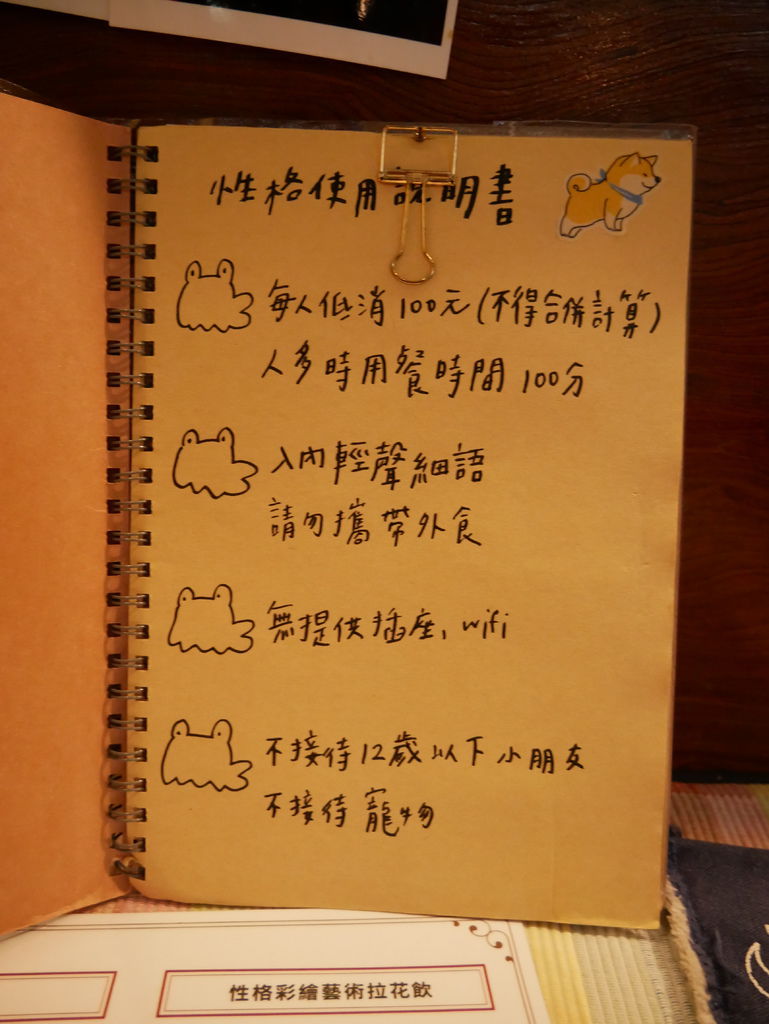 性格使用說明書
每人低消100元(不得合併計算)
人多時用餐時間100分
入內輕聲細語
請勿攜帶外食
無提供插座, wifi
不接待12歲以下小朋友
不接待寵物
性格彩繪藝術拉花飲